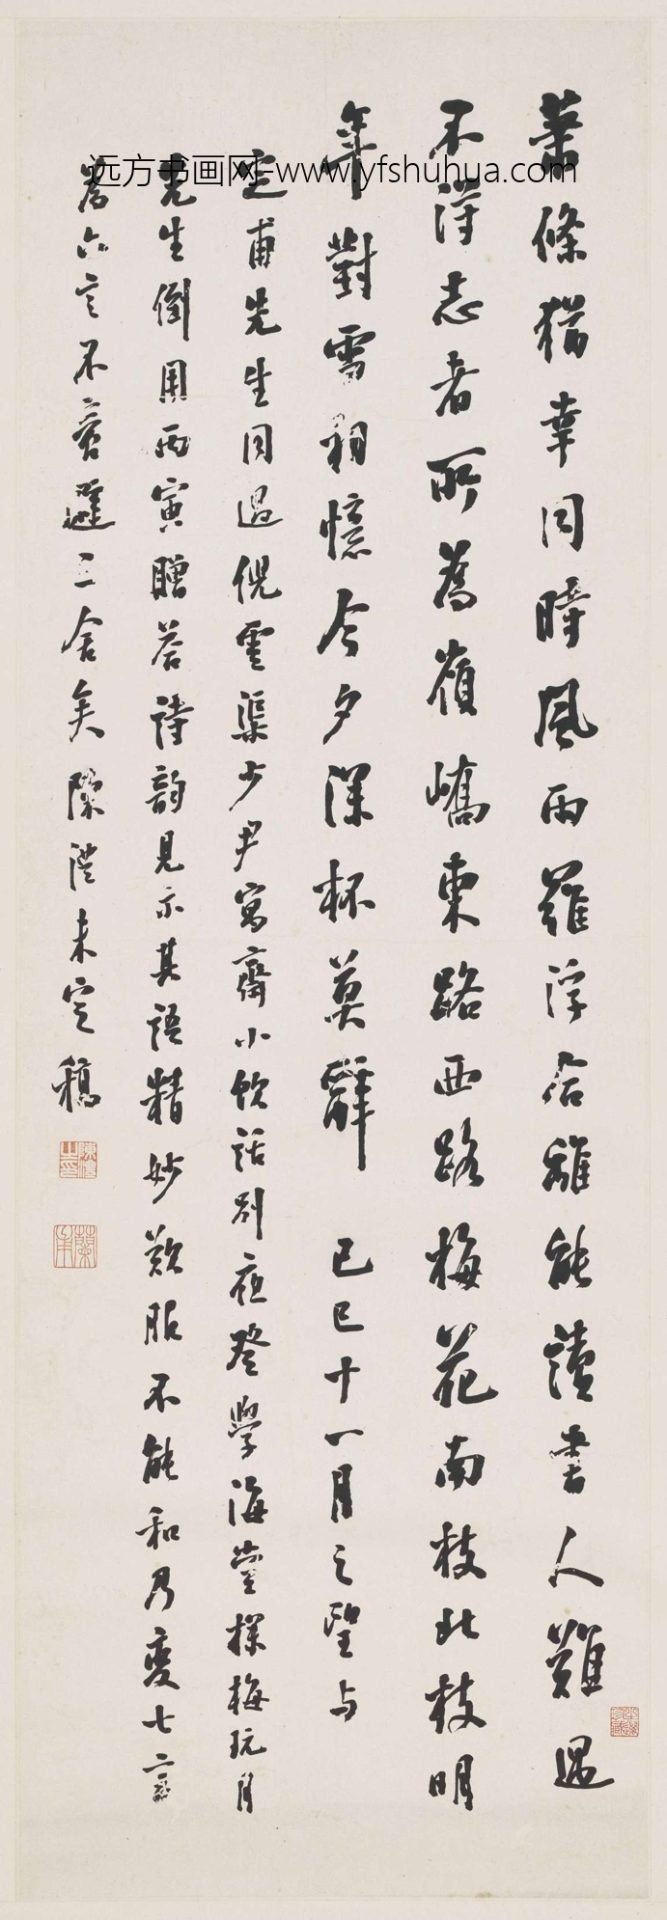 蕭條猶幸同時風雨羅浮合離能讀書人難遇
不得志者所為嶺嶠東路西路梅花南枝北枝明
年對雪相憶今夕深杯莫辭 己巳十一月之望与
定甫先生同過倪雲渠少尹寓齋小飲話別夜登學海堂探梅玩月
先生倒用丙寅贈答詩韵見示其語精妙歎服不能和乃變七言
為六言不啻避三舍矣陳澧未定稿
陳澧之印
蘭甫
远方书画网-www.yfshuhua.com